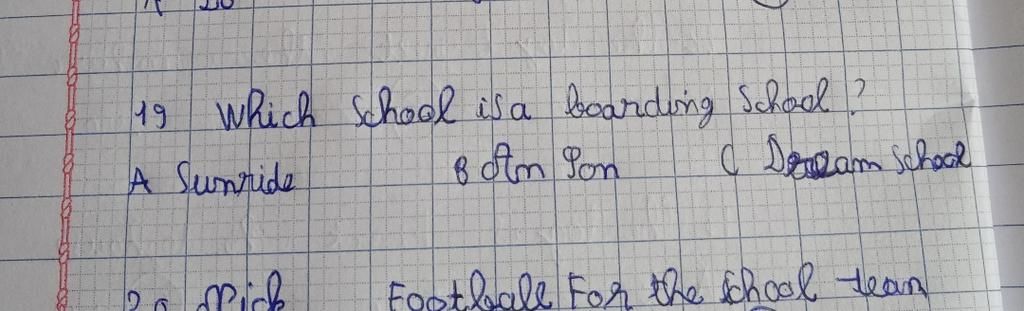 19 Which school is a boarding school?
A Sunride B An Son C Dream school
20 Mick Footballe For the school team